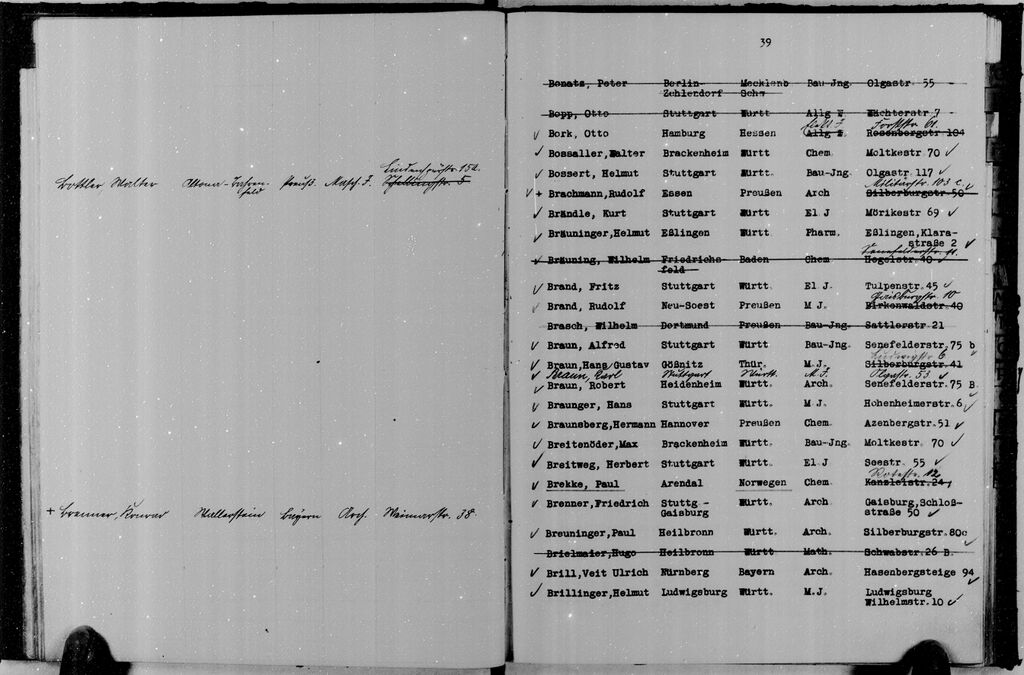 Lindenspürstr. 152.
Bottler Walter Altona-Bahren- Preuß. Masch. J. Schellingstr. 5
feld
+ Brenner, Konrad Wallerstein Bayern Arch. Weimarstr. 38.
39
Bonatz, Peter Berlin- Mecklenb Bau-Jng. Olgastr. 55
Zehlendorf Schw
Bopp, Otto Stuttgart Württ Allg W Wächterstr 7
Forststr. 61.
Bork, Otto Hamburg Hessen Allg W. Rosenbergstr 104
Bossaller, Walter Brackenheim Württ Chem Moltkestr 70
Bossert, Helmut Stuttgart Württ. Bau-Jng. Olgastr. 117
Militärstr. 103 c.
+ Brachmann, Rudolf Essen Preußen Arch Silberburgstr 50
Brändle, Kurt Stuttgart Württ El J Mörikestr 69
Bräuninger, Helmut Eßlingen Württ Pharm. Eßlingen, Klara-
straße 2
Senefelderstr. 91.
Bräuning, Wilhelm Friedrichs- Baden Chem Hegelstr. 40
feld
Brand, Fritz Stuttgart Württ. El J. Tulpenstr. 45
Gaisburgstr. 10
Brand, Rudolf Neu-Soest Preußen M J. Birkenwaldstr 40
Brasch, Wilhelm Dortmund Preußen Bau-Jng. Sattlerstr 21
Braun, Alfred Stuttgart Württ Bau-Jng. Senefelderstr. 75 b
Ludwigstr 6.
Braun, Hans Gustav Gößnitz Thür. M.J. Silberburgstr. 41
Braun, Karl Stuttgart Württ. M. J. Olgastr. 53.
Braun, Robert Heidenheim Württ. Arch. Senefelderstr. 75 B.
Braunger, Hans Stuttgart Württ. M J. Hohenheimerstr. 6
Braunsberg, Hermann Hannover Preußen Chem. Azenbergstr. 51
Breitenöder, Max Brackenheim Württ. Bau-Jng. Moltkestr. 70
Breitweg, Herbert Stuttgart Württ. El J Seestr. 55
Rotestr. 12.
Brekke, Paul Arendal Norwegen Chem. Kanzleistr. 24
Brenner, Friedrich Stuttg - Württ. Arch. Gaisburg, Schloß-
Gaisburg straße 50
Breuninger, Paul Heilbronn Württ. Arch. Silberburgstr. 80c
Brielmaier, Hugo Heilbronn Württ Math. Schwabstr. 26 B.
Brill, Veit Ulrich Nürnberg Bayern Arch. Hasenbergsteige 94
Brillinger, Helmut Ludwigsburg Württ. M.J. Ludwigsburg
Wilhelmstr. 10